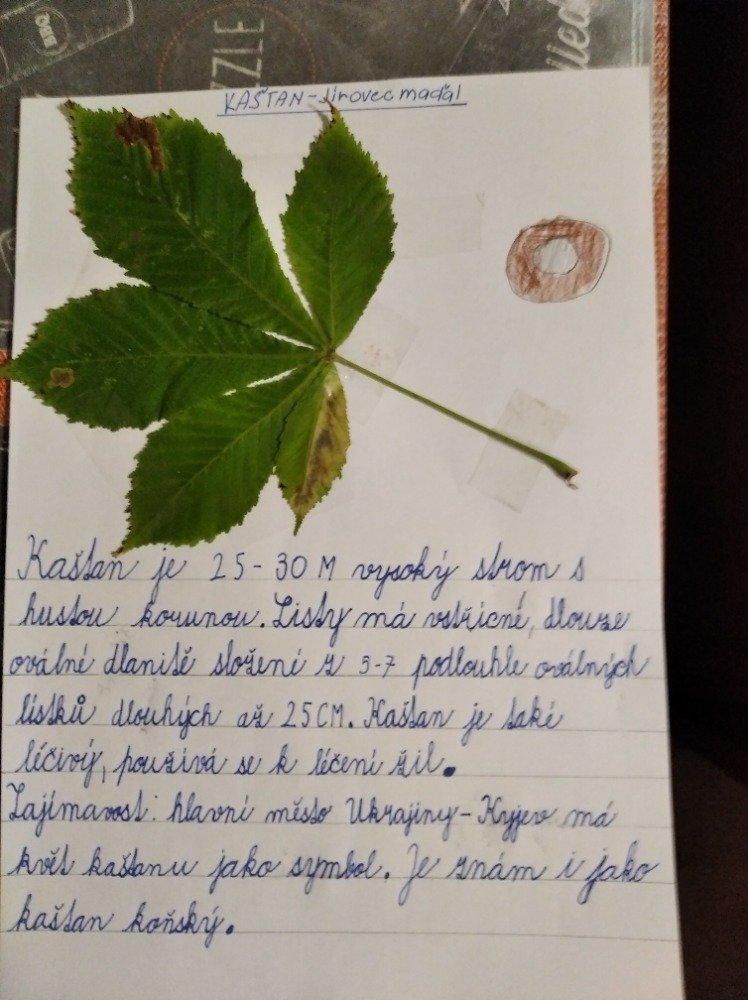 ZZLE
KAŠTAN - Jírovec maďal
Kaštan je 25-30 M vysoký strom s
hustou korunou. Listy má vstřícné, dlouze
oválné dlanitě složení z 5-7 podlouhle oválných
lístků dlouhých až 25CM. Kaštan je také
léčivý, používá se k léčení žil.
Zajímavost: hlavní město Ukrajiny-Kyjev má
květ kaštanu jako symbol. Je znám i jako
kaštan koňský.